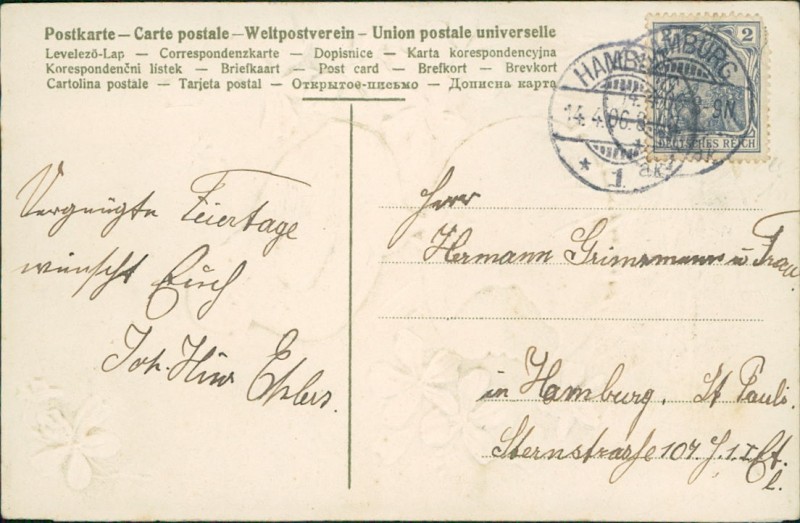 Postkarte — Carte postale — Weltpostverein — Union postale universelle
Levelező-Lap — Correspondenzkarte — Dopisnice — Karta korespondencyjna
Korespondenční lístek — Briefkaart — Post card — Brefkort — Brevkort
Cartolina postale — Tarjeta postal — Открытое-письмо — Дописна карта
2
DEUTSCHES REICH
HAMBURG
14.4.06. 8
* 1.
HAMBURG
9N
Vergnügte Feiertage
wünscht Euch
Joh. Hinr Ehlers.
Herrn
Hermann Grimmann u Frau.
in Hamburg. St Pauli.
Sternstraße 107. J. 1 I Et.
l.